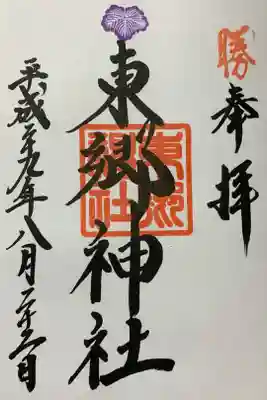 勝
奉拝
東郷神社
東郷神社
平成二十九年八月二十二日